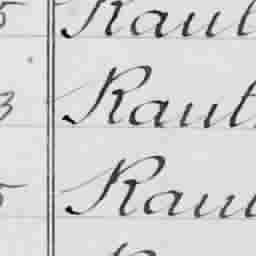 5 Raul
3 Raul
5 Raul